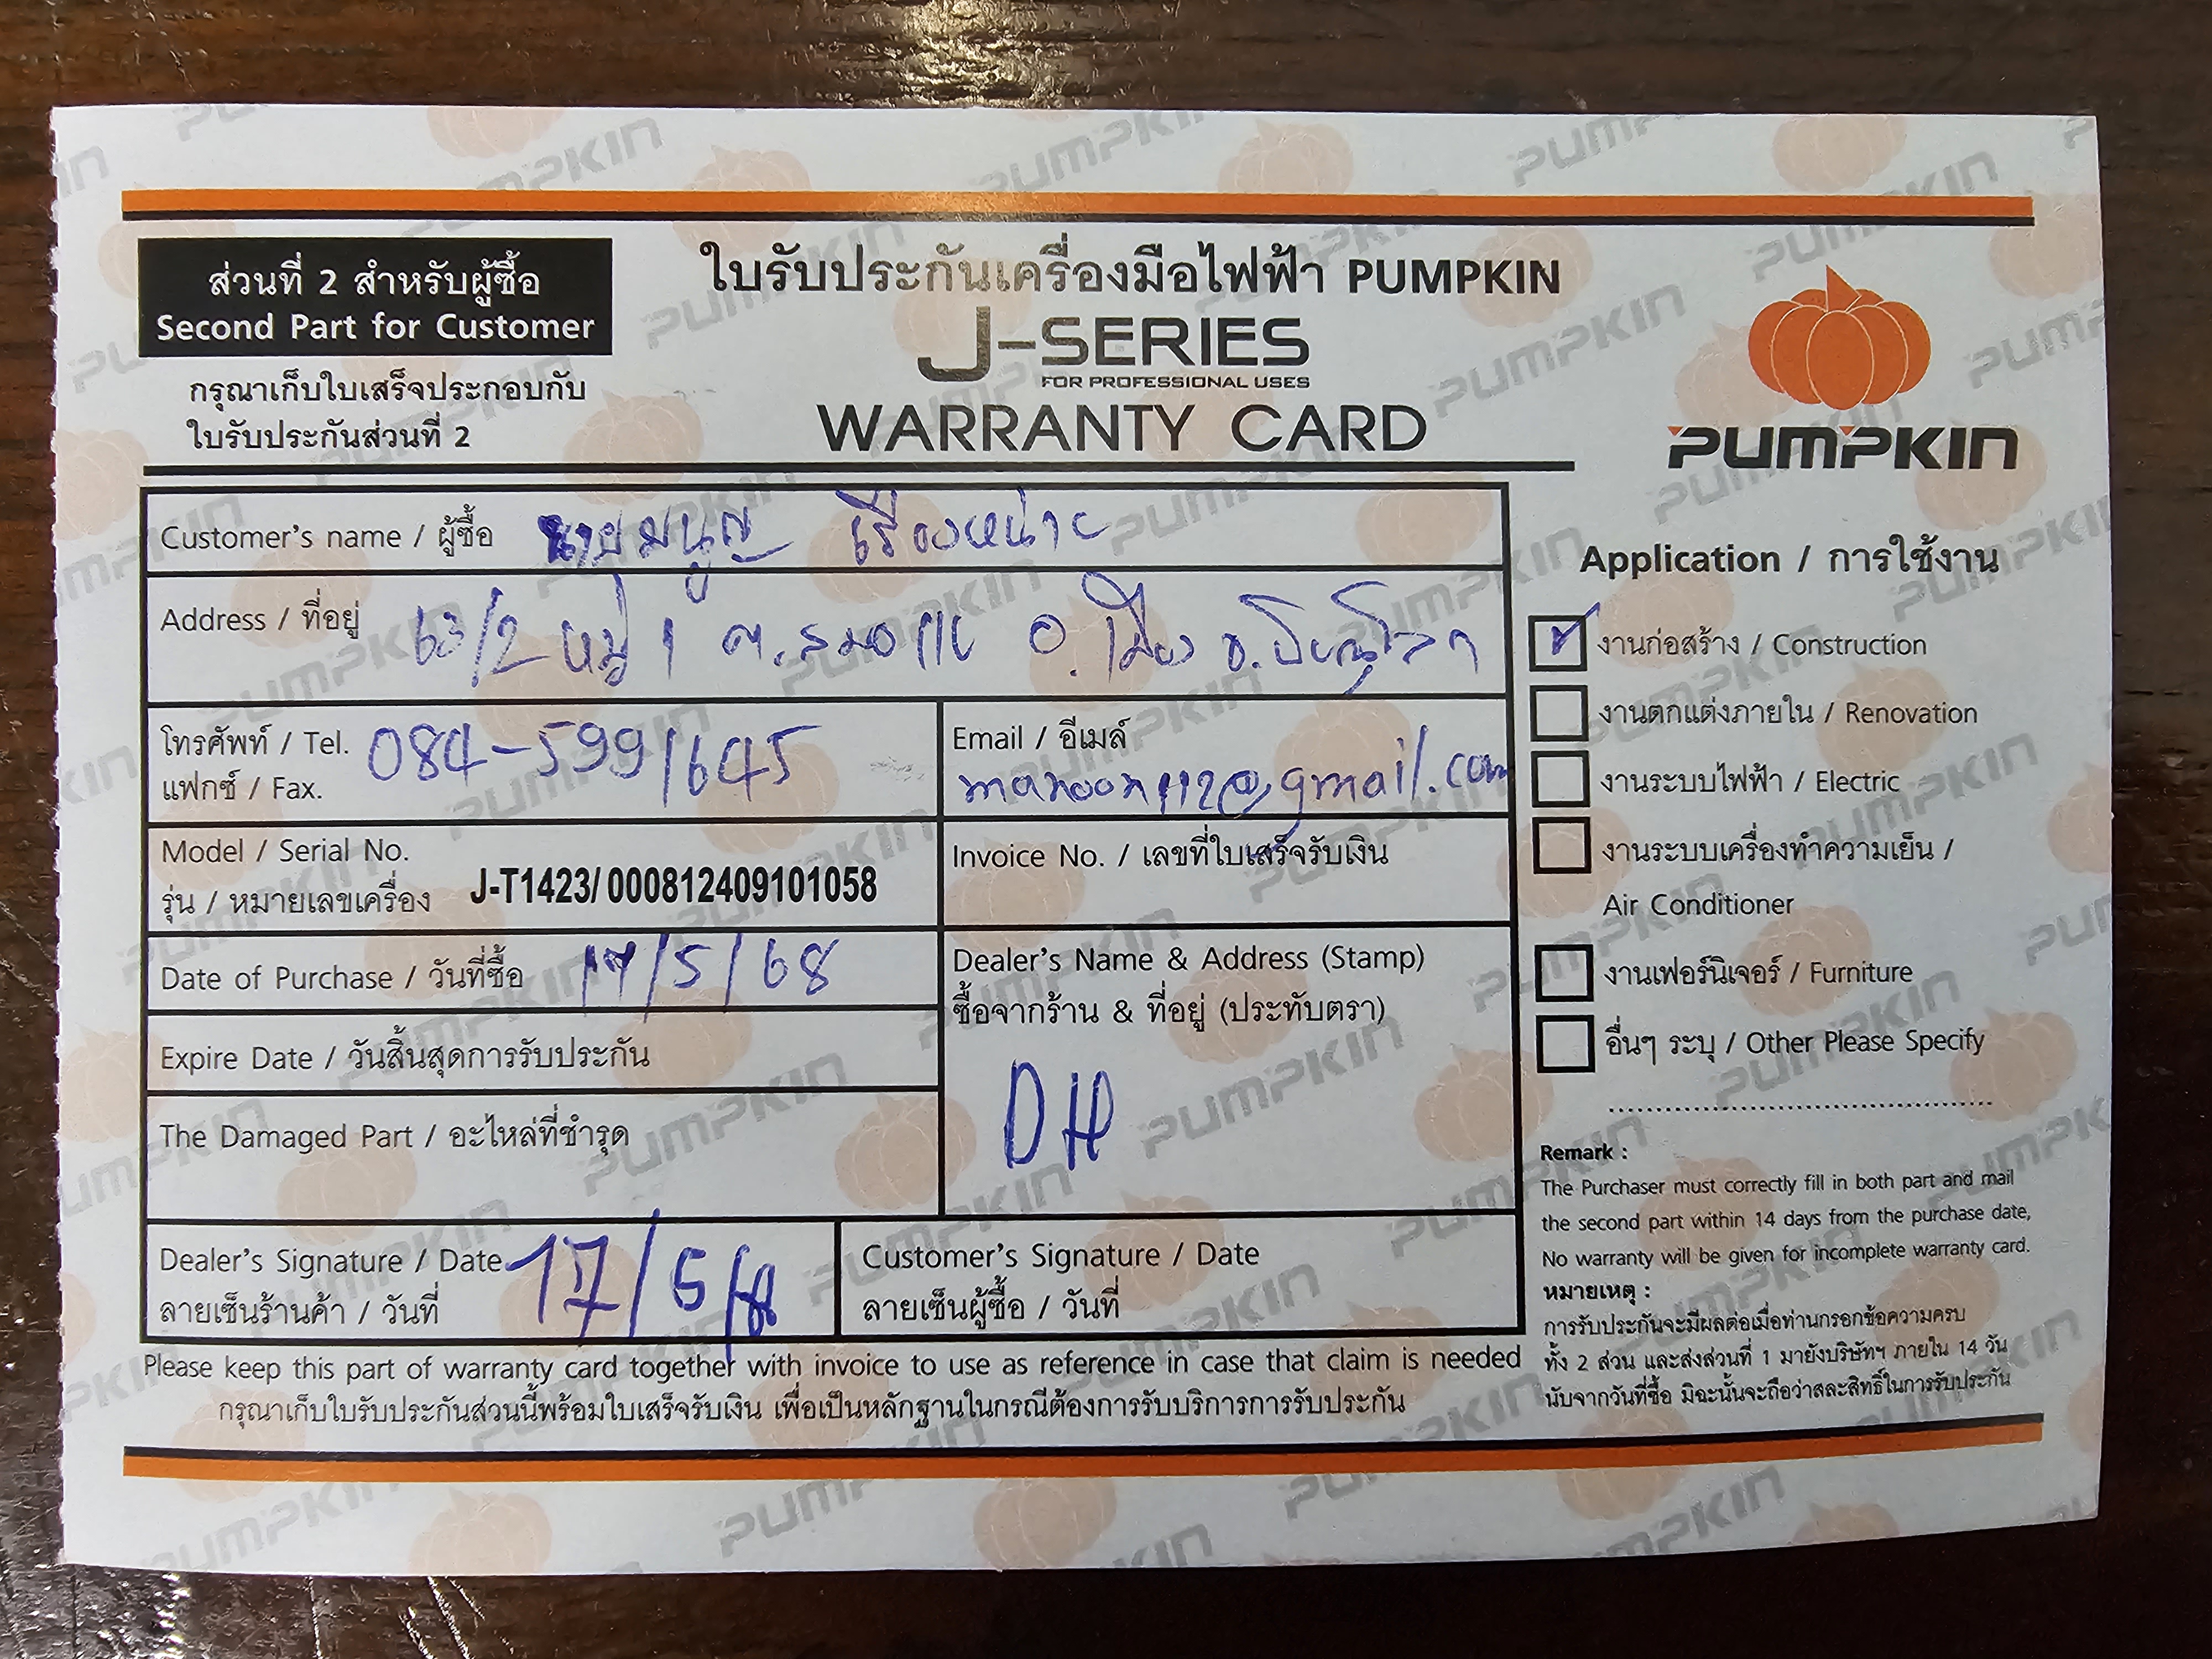 ส่วนที่ 2 สำหรับผู้ซื้อ
Second Part for Customer
กรุณาเก็บใบเสร็จประกอบกับ
ใบรับประกันส่วนที่ 2
ใบรับประกันเครื่องมือไฟฟ้า PUMPKIN
J-SERIES
FOR PROFESSIONAL USES
WARRANTY CARD
PUMPKIN
Customer's name / ผู้ซื้อ นายมนูญ เรืองหน่าย
Address / ที่อยู่ 63/2 หมู่ 1 ต.สมอแข อ.เมือง จ.พิษณุโลก
โทรศัพท์ / Tel. 084-5991645
แฟกซ์ / Fax.
Email / อีเมล์
manoon112@gmail.com
Model / Serial No.
รุ่น / หมายเลขเครื่อง J-T1423/000812409101058
Invoice No. / เลขที่ใบเสร็จรับเงิน
Date of Purchase / วันที่ซื้อ 17/5/68
Expire Date / วันสิ้นสุดการรับประกัน
The Damaged Part / อะไหล่ที่ชำรุด
Dealer's Name & Address (Stamp)
ซื้อจากร้าน & ที่อยู่ (ประทับตรา)
DH
Dealer's Signature / Date 17/5/68
ลายเซ็นร้านค้า / วันที่
Customer's Signature / Date
ลายเซ็นผู้ซื้อ / วันที่
Please keep this part of warranty card together with invoice to use as reference in case that claim is needed
กรุณาเก็บใบรับประกันส่วนนี้พร้อมใบเสร็จรับเงิน เพื่อเป็นหลักฐานในกรณีต้องการรับบริการการรับประกัน
Application / การใช้งาน
งานก่อสร้าง / Construction
งานตกแต่งภายใน / Renovation
งานระบบไฟฟ้า / Electric
งานระบบเครื่องทำความเย็น /
Air Conditioner
งานเฟอร์นิเจอร์ / Furniture
อื่นๆ ระบุ / Other Please Specify
Remark :
The Purchaser must correctly fill in both part and mail
the second part within 14 days from the purchase date,
No warranty will be given for incomplete warranty card.
หมายเหตุ :
การรับประกันจะมีผลต่อเมื่อท่านกรอกข้อความครบ
ทั้ง 2 ส่วน และส่งส่วนที่ 1 มายังบริษัทฯ ภายใน 14 วัน
นับจากวันที่ซื้อ มิฉะนั้นจะถือว่าสละสิทธิ์ในการรับประกัน